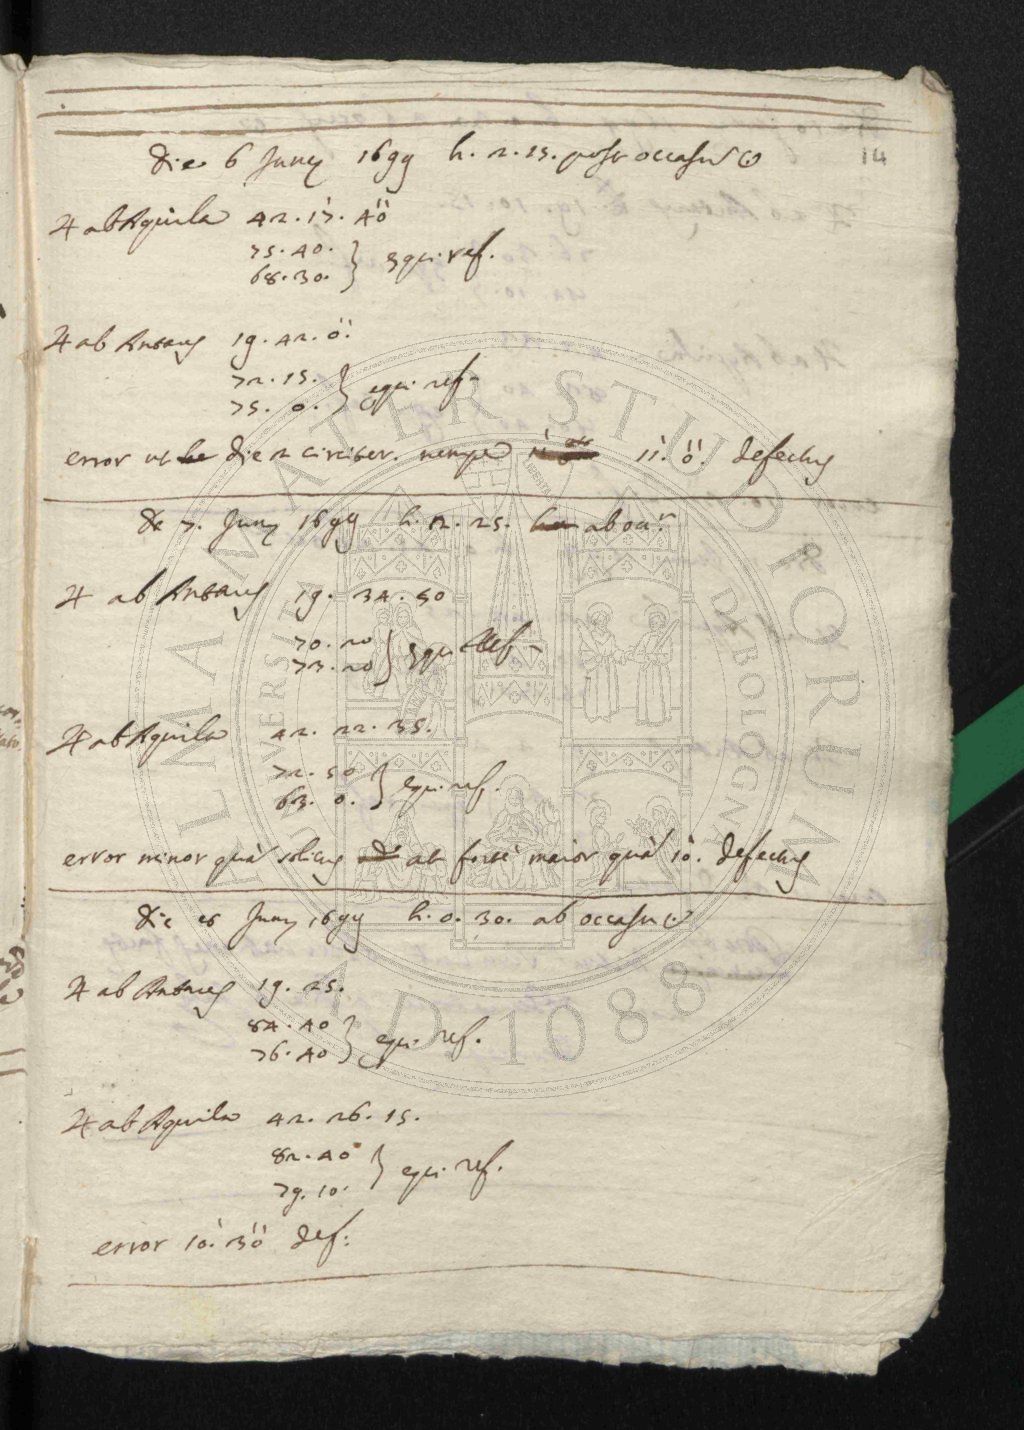 14
Die 6 Junij 1699 h. 2. 15. post occasū ☉
♃ ab Aquila 42. 17. 40
75. 40.
68. 30. } equi. ref.
♃ ab Antares 19. 42. 0
72. 15.
75. 0. } equi. ref.
error ut die 2 circiter. nempe 11. 0. defectus
De 7. Junij 1699 h. 2. 25. ab occ.
♃ ab Antares 19. 34. 50
70. 20
73. 20 } equi ref.
♃ ab Aquila 42. 22. 35.
72. 50
63. 0. } equi. ref.
error minor quā solitus at forte maior quā 10. defectus
Die Junij 1699 h. 0. 30. ab occasu ☉
♃ ab Antares 19. 25.
84. 40
76. 40 } equi. ref.
♃ ab Aquila 42. 26. 15.
82. 40
79. 10. } equi. ref.
error 10. 30 def:
ALMA MATER STUDIORUM
UNIVERSITÀ DI BOLOGNA
A.D. 1088